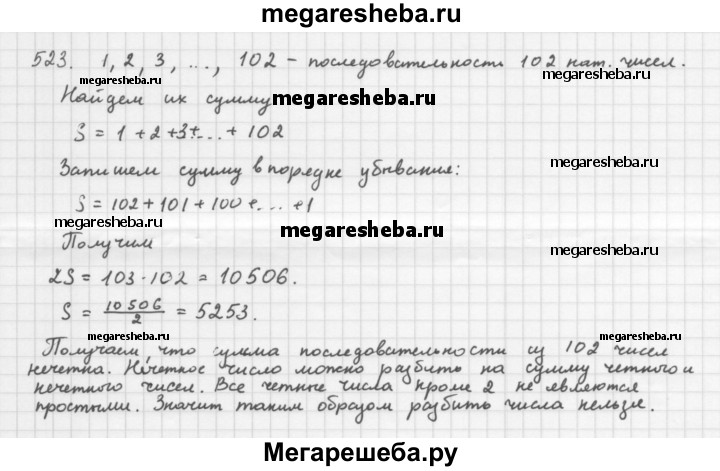 megaresheba.ru
523. 1, 2, 3, ..., 102 – последовательность 102 нат. чисел.
megaresheba.ru
megaresheba.ru
Найдем их сумму
megaresheba.ru
S = 1 + 2 + 3 + ... + 102
Запишем сумму в порядке убывания:
megaresheba.ru
S = 102 + 101 + 100 + ... + 1
megaresheba.ru
megaresheba.ru
Получим
2S = 103 · 102 = 10506.
S = 10506/2 = 5253.
megaresheba.ru
megaresheba.ru
Получаем, что сумма последовательности из 102 чисел
нечетна. Нечетное число можно разбить на сумму четного и
нечетного чисел. Все четные числа кроме 2 не являются
простыми. Значит таким образом разбить числа нельзя.
Мегарешеба.ру